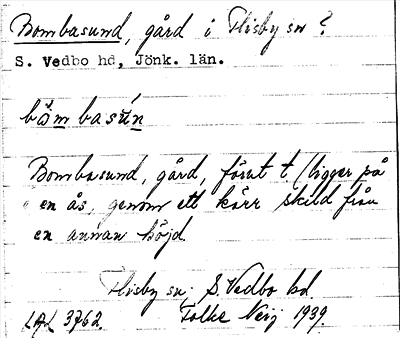 Bombasund, gård i Flisby sn?
S. Vedbo hd, Jönk. län.
båmbasún
Bombasund, gård, förut t. (ligger på
en ås, genom ett kärr skild från
en annan höjd.
Flisby sn, S. Vedbo hd
LAL 3762. Folke 1939.